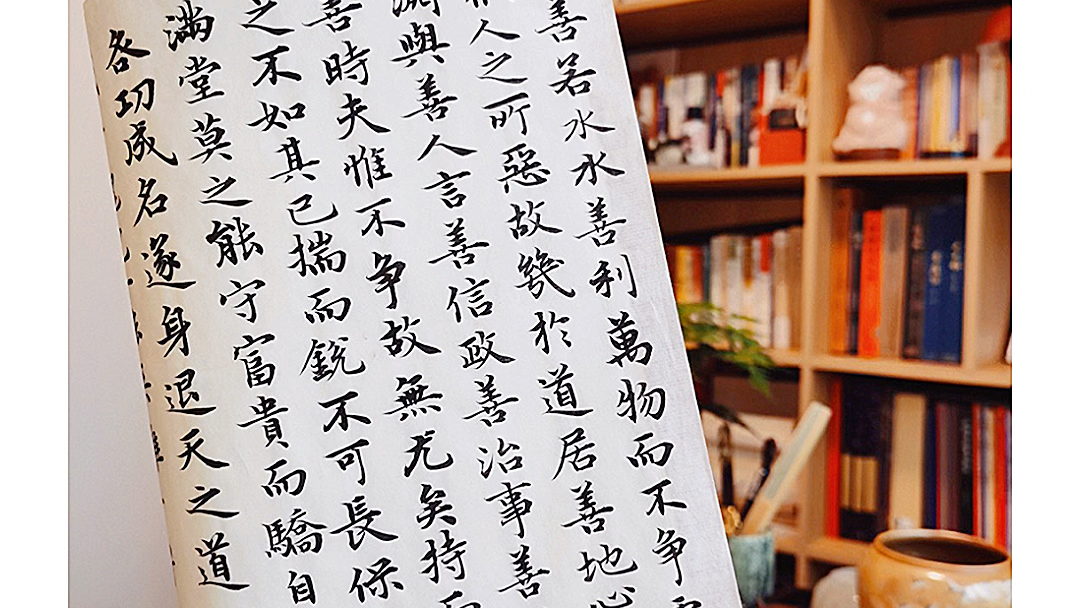 善若水水善利萬物而不争
人之所惡故幾於道居善地心
淵與善人言善信政善治事善
善時夫惟不争故無尤矣持而
之不如其已揣而銳不可長保
滿堂莫之能守富貴而驕自
咎功成名遂身退天之道